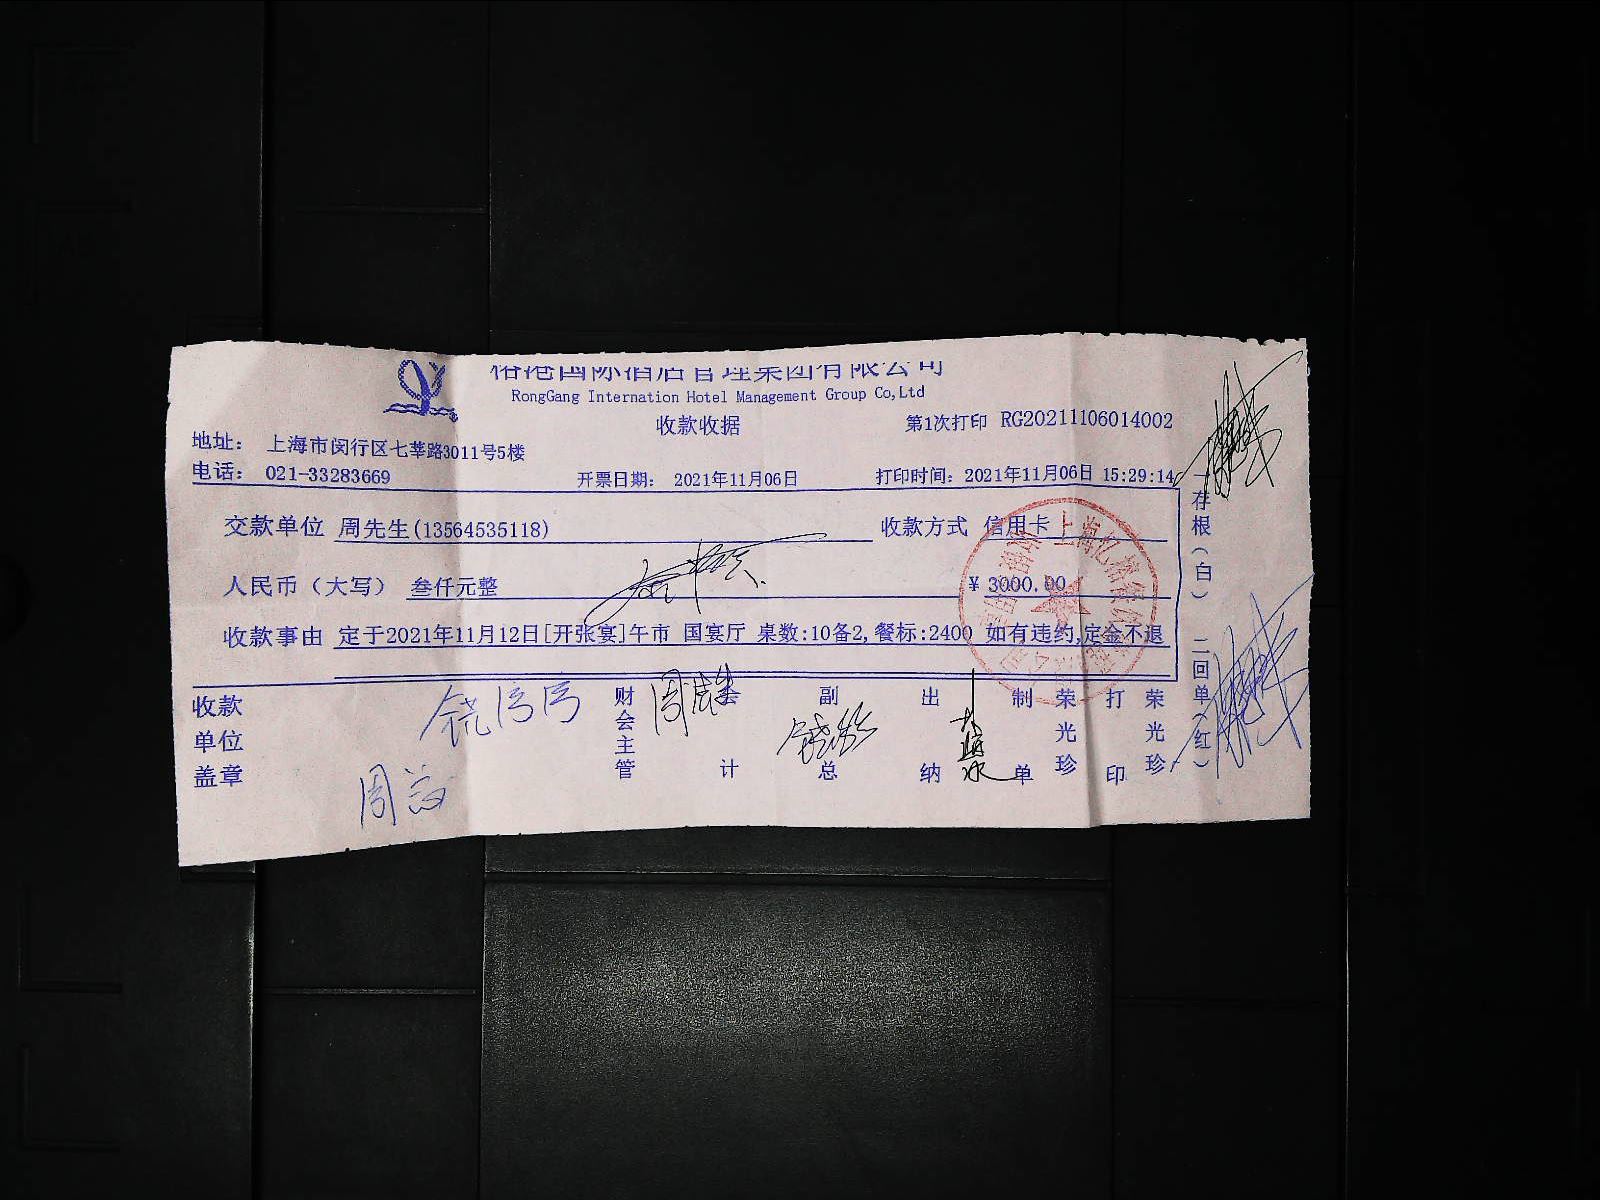 榕港国际酒店管理集团有限公司
RongGang Internation Hotel Management Group Co,Ltd
收款收据
第1次打印 RG20211106014002
地址： 上海市闵行区七莘路3011号5楼
电话： 021-33283669
开票日期： 2021年11月06日
打印时间：2021年11月06日 15:29:14
交款单位 周先生(13564535118)
收款方式 信用卡
人民币（大写） 叁仟元整
¥ 3000.00
收款事由 定于2021年11月12日[开张宴]午市 国宴厅 桌数:10备2,餐标:2400 如有违约,定金不退
收款单位盖章
财会主管
会计
副总
出纳
制单
荣光珍
打印
荣光珍
一存根（白） 二回单（红）